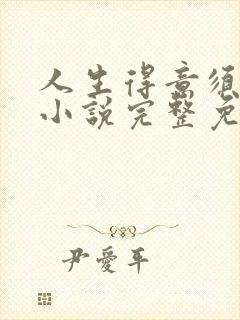 人生得意須
小說完整免
尹愛平